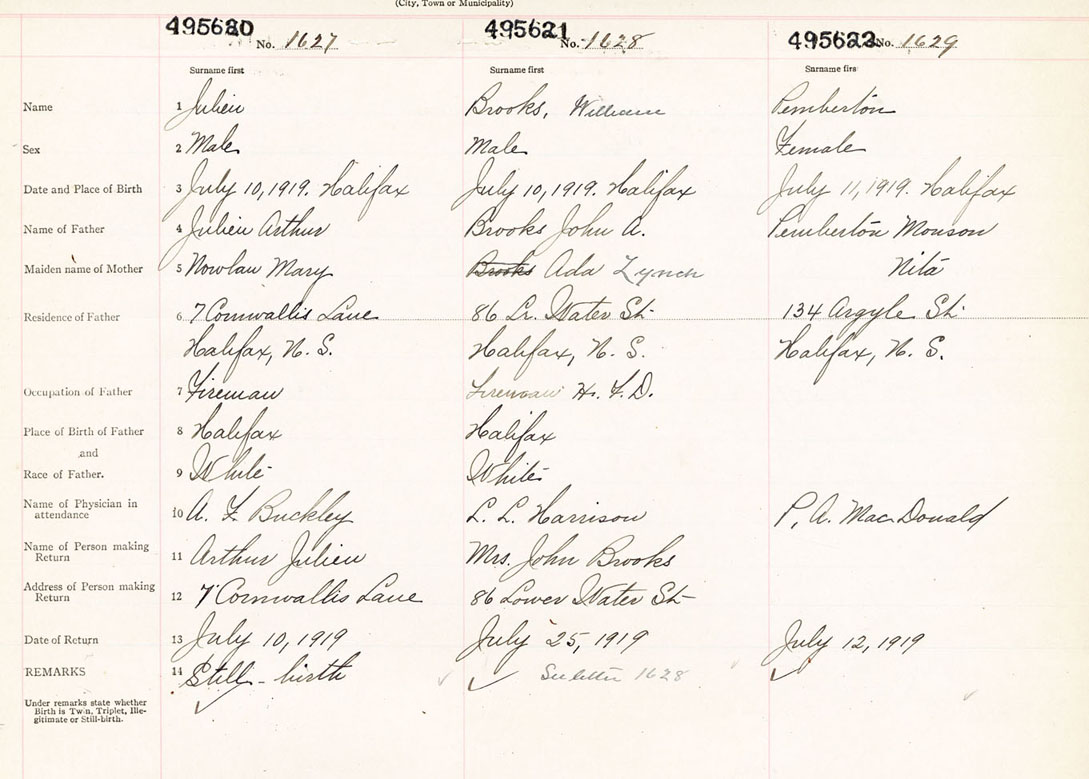 (City, Town or Municipality)
495620 No. 1627 495621 No. 1628 495622 No. 1629
Surname first Surname first Surname firs
Name 1 Julien Brooks, William Pemberton
Sex 2 Male Male Female
Date and Place of Birth 3 July 10, 1919. Halifax July 10, 1919. Halifax July 11, 1919. Halifax
Name of Father 4 Julien Arthur Brooks John A. Pemberton Monson
Maiden name of Mother 5 Nowlan Mary Brooks Ada Lynch Nita
Residence of Father 6 7 Cornwallis Lane 86 Lr. Water St. 134 Argyle St.
Halifax, N. S. Halifax, N. S. Halifax, N. S.
Occupation of Father 7 Fireman Fireman Hx. F. D.
Place of Birth of Father 8 Halifax Halifax
and
Race of Father. 9 White White
Name of Physician in
attendance 10 A. F. Buckley L. L. Harrison P. A. MacDonald
Name of Person making
Return 11 Arthur Julien Mrs. John Brooks
Address of Person making
Return 12 7 Cornwallis Lane 86 Lower Water St
Date of Return 13 July 10, 1919 July 25, 1919 July 12, 1919
REMARKS 14 Still-birth See letter 1628
Under remarks state whether
Birth is Twin, Triplet, Ille-
gitimate or Still-birth.